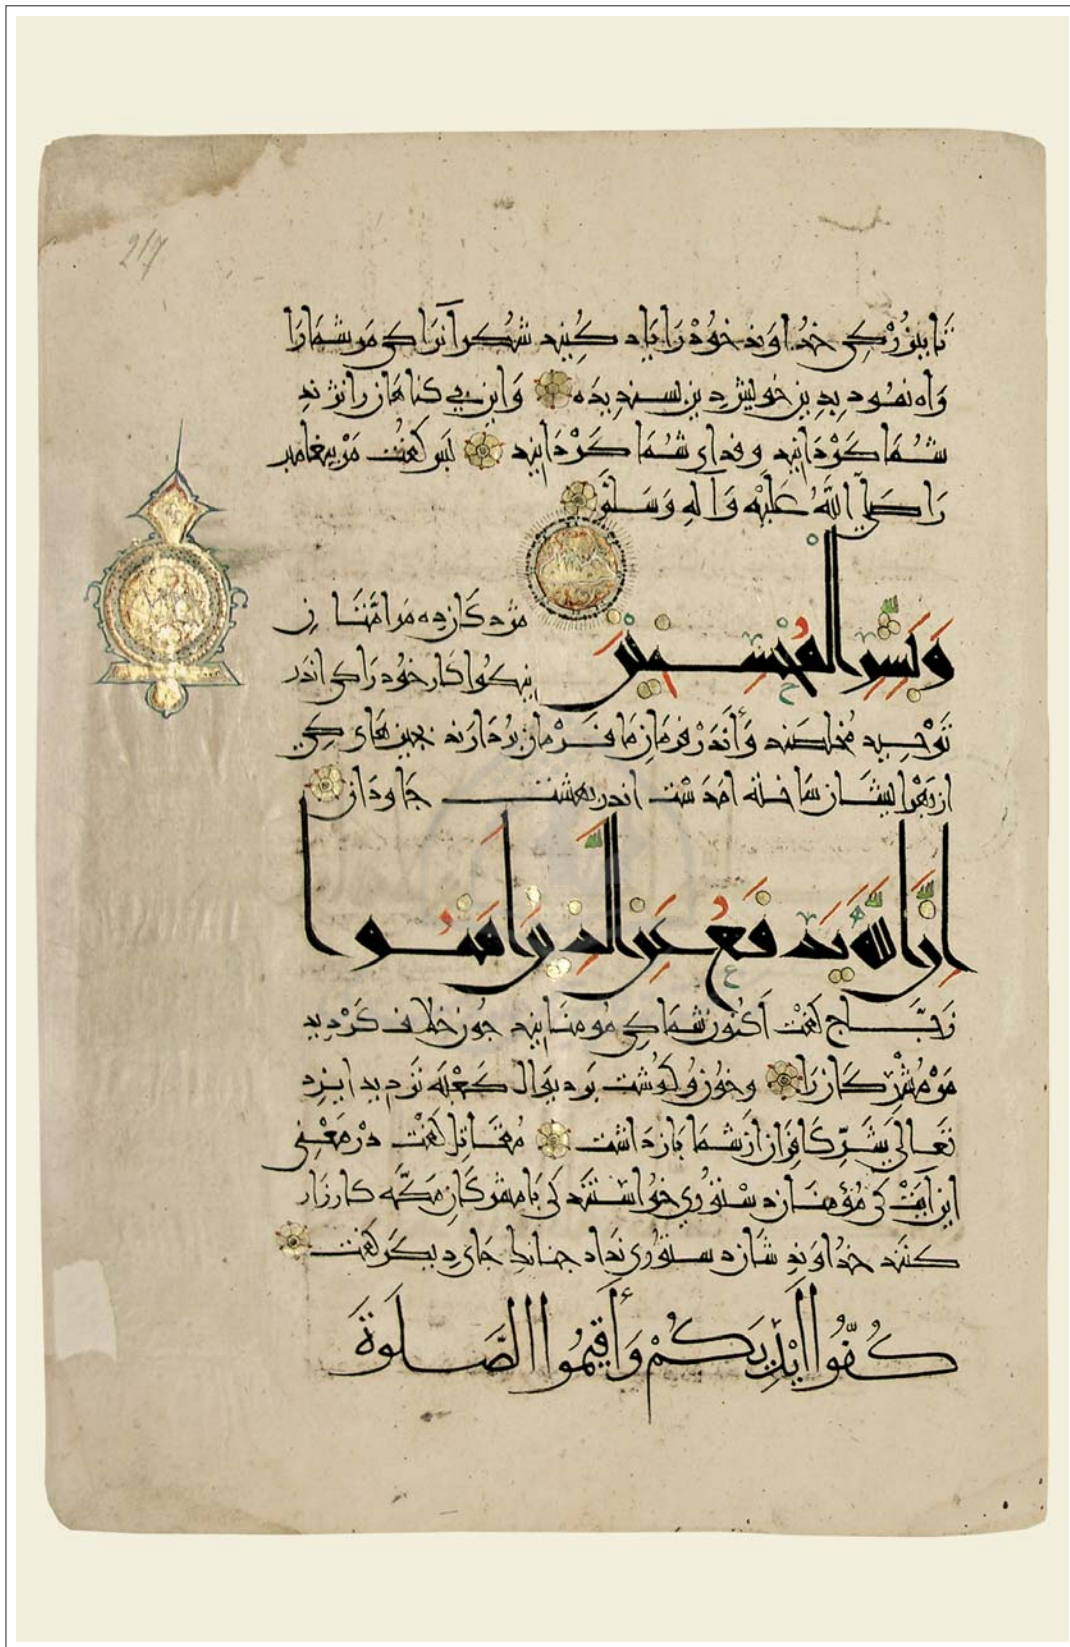 217
تا ببزرگی خداوند خود را یاد کنید شکر آنرا کی مر شما را
راه نمود بدین خویش دین پسندیده واین بی گناهان را نژند
شما گردانید و فدای شما گردانید پس گفت مر پیغامبر
را صَلَّی اللهُ عَلَیْهِ وَآلِهِ وَسَلَّمَ
وَبَشِّرِ الْمُحْسِنِينَ
مژدگان ده مر امتان
نیکوا کار خود را کی اندر
توحید مخلصند و أندر فرمان ما فرمان بردارند چیزهای کی
از بهر ایشان ساخته امدست اندر بهشت جاودان
اِنَّ اللّٰهَ يَدْفَعُ عَنِ الَّذِينَ اٰمَنُوا
زجّاج گفت اکنون شما کی مومنانید چون خلاف کردید
مر مُشرکان را و خون و گوشت بر دیوال کعبه نزدید ایزد
تعالی شرّ کافران از شما باز داشت مقاتل گفت در معنی
این آیت کی مؤمنان دستوری خواستند کی با مشرکان مکّه کارزار
کنند خداوند شان دستوری نداد چنانک جای دیگر گفت
كُفُّوا أَيْدِيَكُمْ وَأَقِيمُوا الصَّلَوةَ